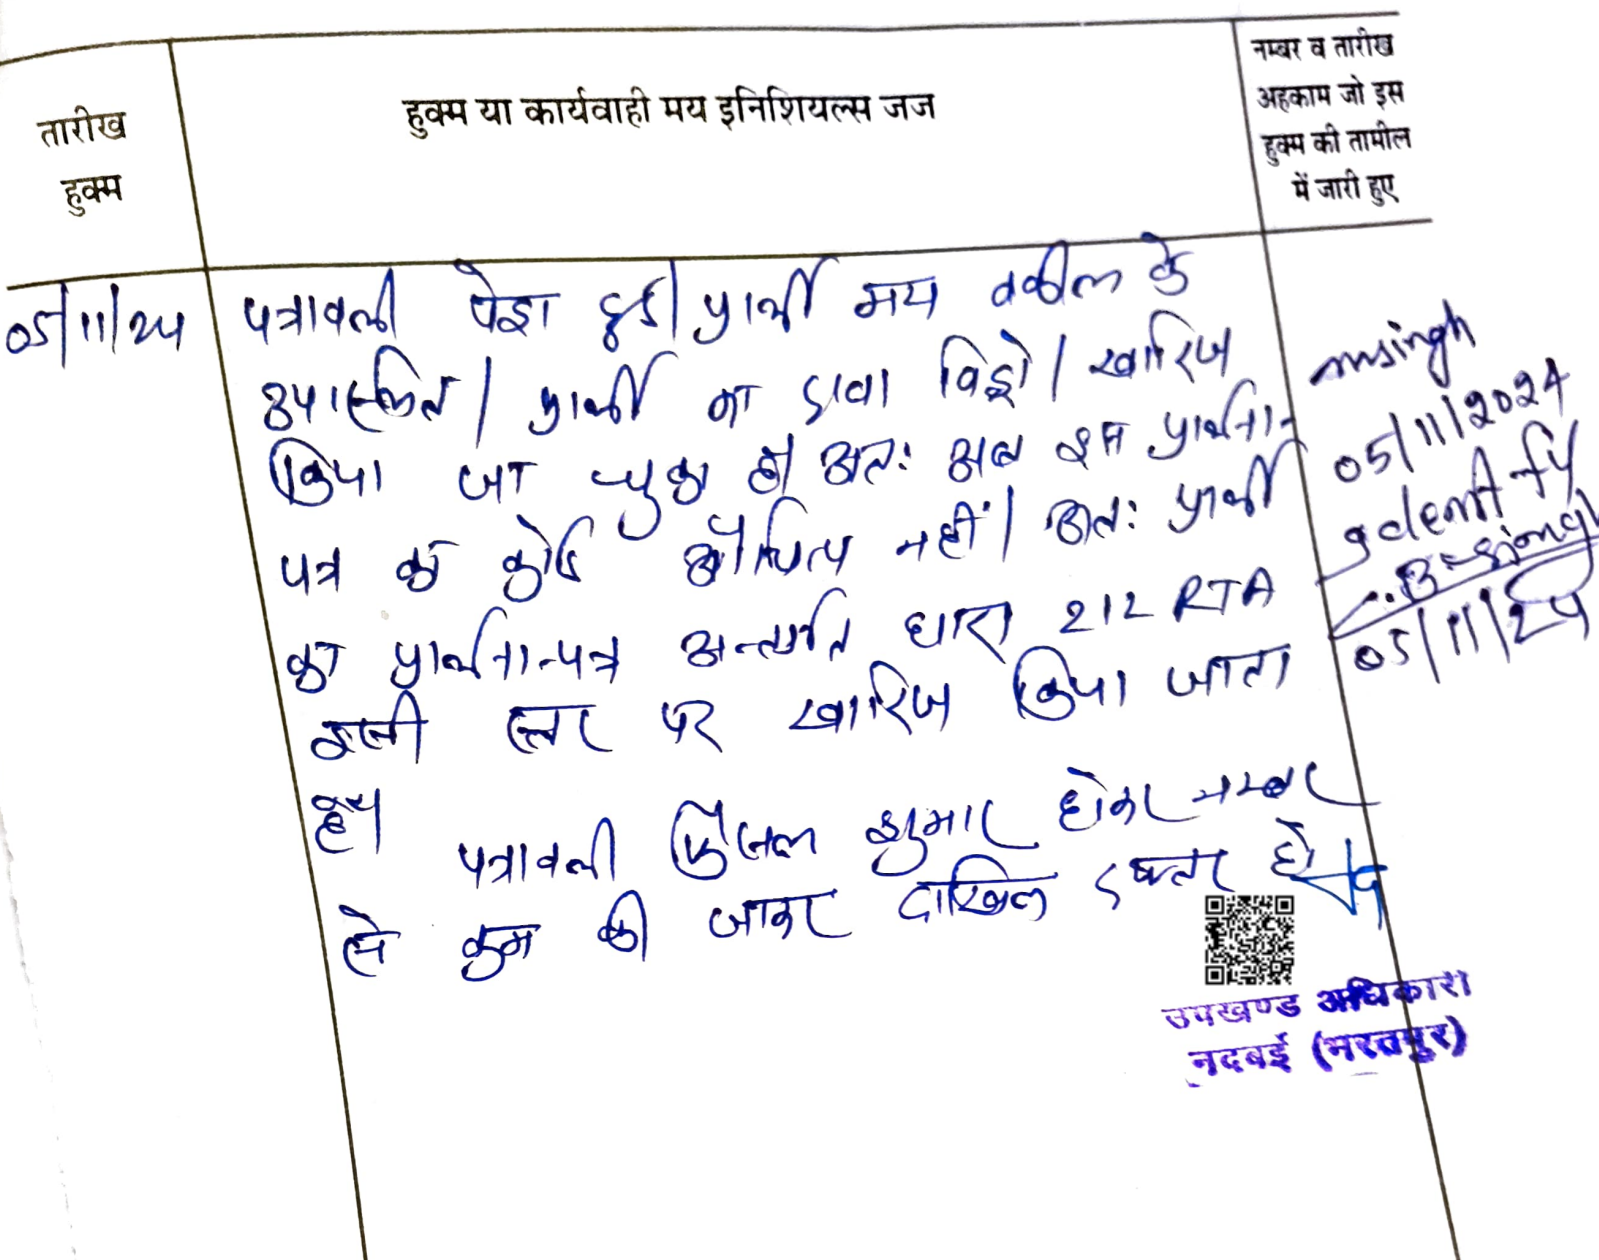 तारीख
हुक्म
हुक्म या कार्यवाही मय इनिशियल्स जज
नम्बर व तारीख
अहकाम जो इस
हुक्म की तामील
में जारी हुए
05/11/24
पत्रावली पेश हुई। प्रार्थी मय वकील के
उपस्थित। प्रार्थी का दावा विड्रो/खारिज
किया जा चुका है। अतः अब इस प्रार्थना-
पत्र का कोई औचित्य नहीं। अतः प्रार्थी
का प्रार्थना-पत्र अन्तर्गत धारा 212 RTA
इसी स्तर पर खारिज किया जाता
है।
पत्रावली फैसल शुमार होकर नम्बर
से कम की जाकर दाखिल दफ्तर हो
msingh
05/11/2024
Idemtify
05/11/24
उपखण्ड अधिकारी
नदबई (भरतपुर)